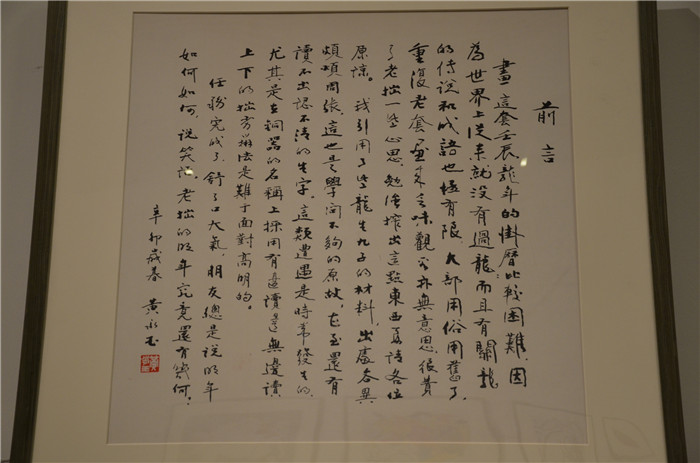 前言
畫這套壬辰龍年的掛曆比較困難，因
為世界上從來就没有過龍，而且有關龍
的傳說和成語也極有限，大部用俗用舊了，
重復老套，畫來乏味，觀亦無意思，很費
了老拙一些心思，勉強搾出這點東西，請各位
原諒。我引用了些龍生九子的材料，出處各異
煩瑣周張，這也是學问不夠的原故，甚至還有
讀不出認不清的生字，這類遭遇是時常發生的，
尤其是在銅器的名稱上採用有邊讀邊無邊讀
上下的拙劣辦法是難于面對高明的。
任務完成了，舒了口大氣，朋友總是說明年
如何如何，說笑說，老拙的明年究竟還有幾何。
辛卯歲春 黄永玉